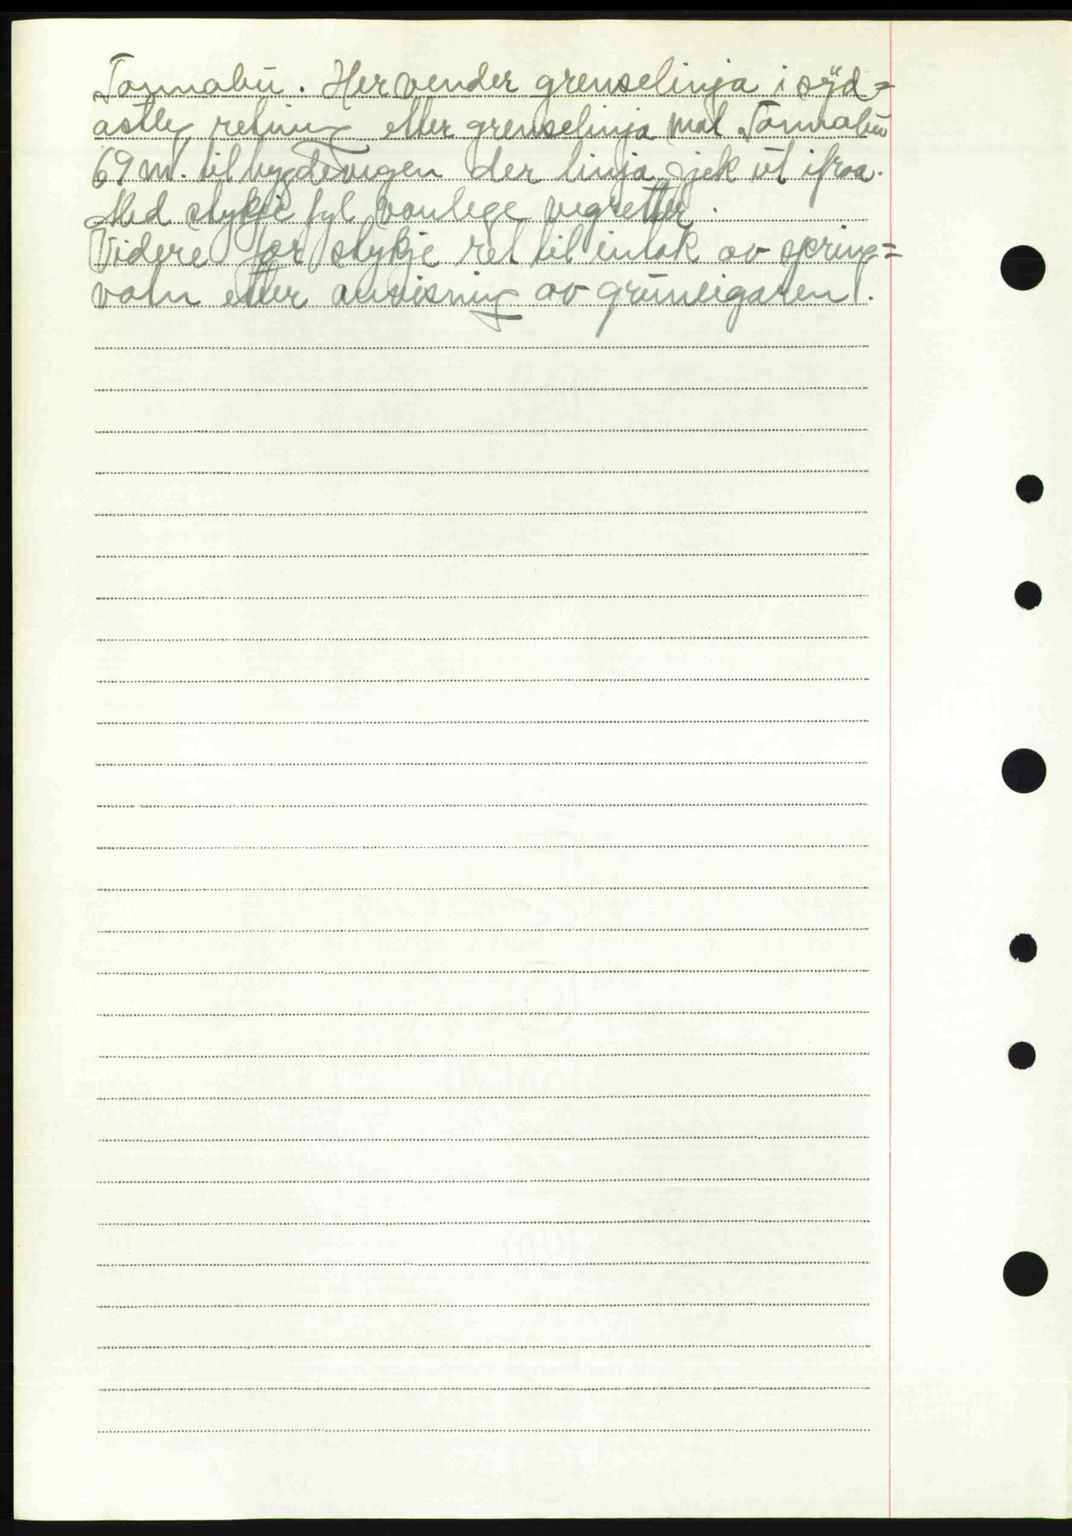 Tonnabu. Her vender grenselinja i syd=
østleg retning etter grenselinja mot Tonnabu
69 m. til bygdevegen der linja gjek ut ifraa.
Med stykje fyl vanlege vegretter.
Videre før stykje ret til intak av spring=
vatn etter anvisning av gruneigaren.